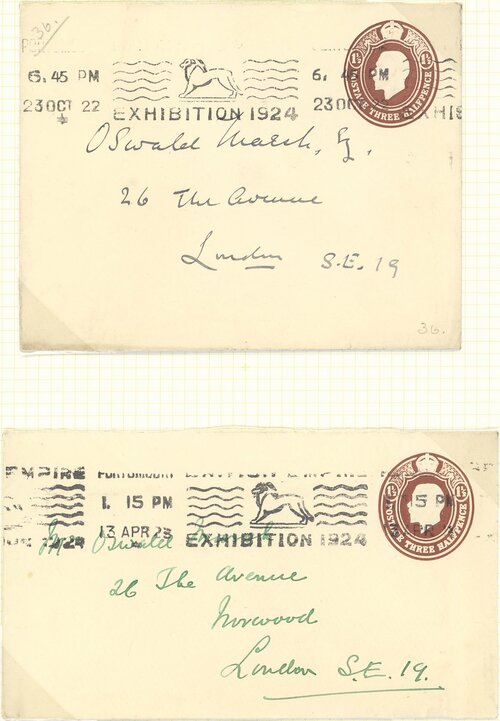 36.
6. 45 PM
23 OCT 22
EXHIBITION 1924
6, 4 PM
23 O 22
HIS
1½ 1½
POSTAGE THREE HALFPENCE
Oswald Marsh, Esq.
26 The Avenue
London S.E. 19
36.
EMPIRE
PORTSMOUTH
BRITISH EMPIRE
1. 15 PM
13 APR 23
1924
EXHIBITION 1924
15 PM
PR
1½ 1½
POSTAGE THREE HALFPENCE
Oswald
26 The Avenue
Norwood
London S.E. 19.